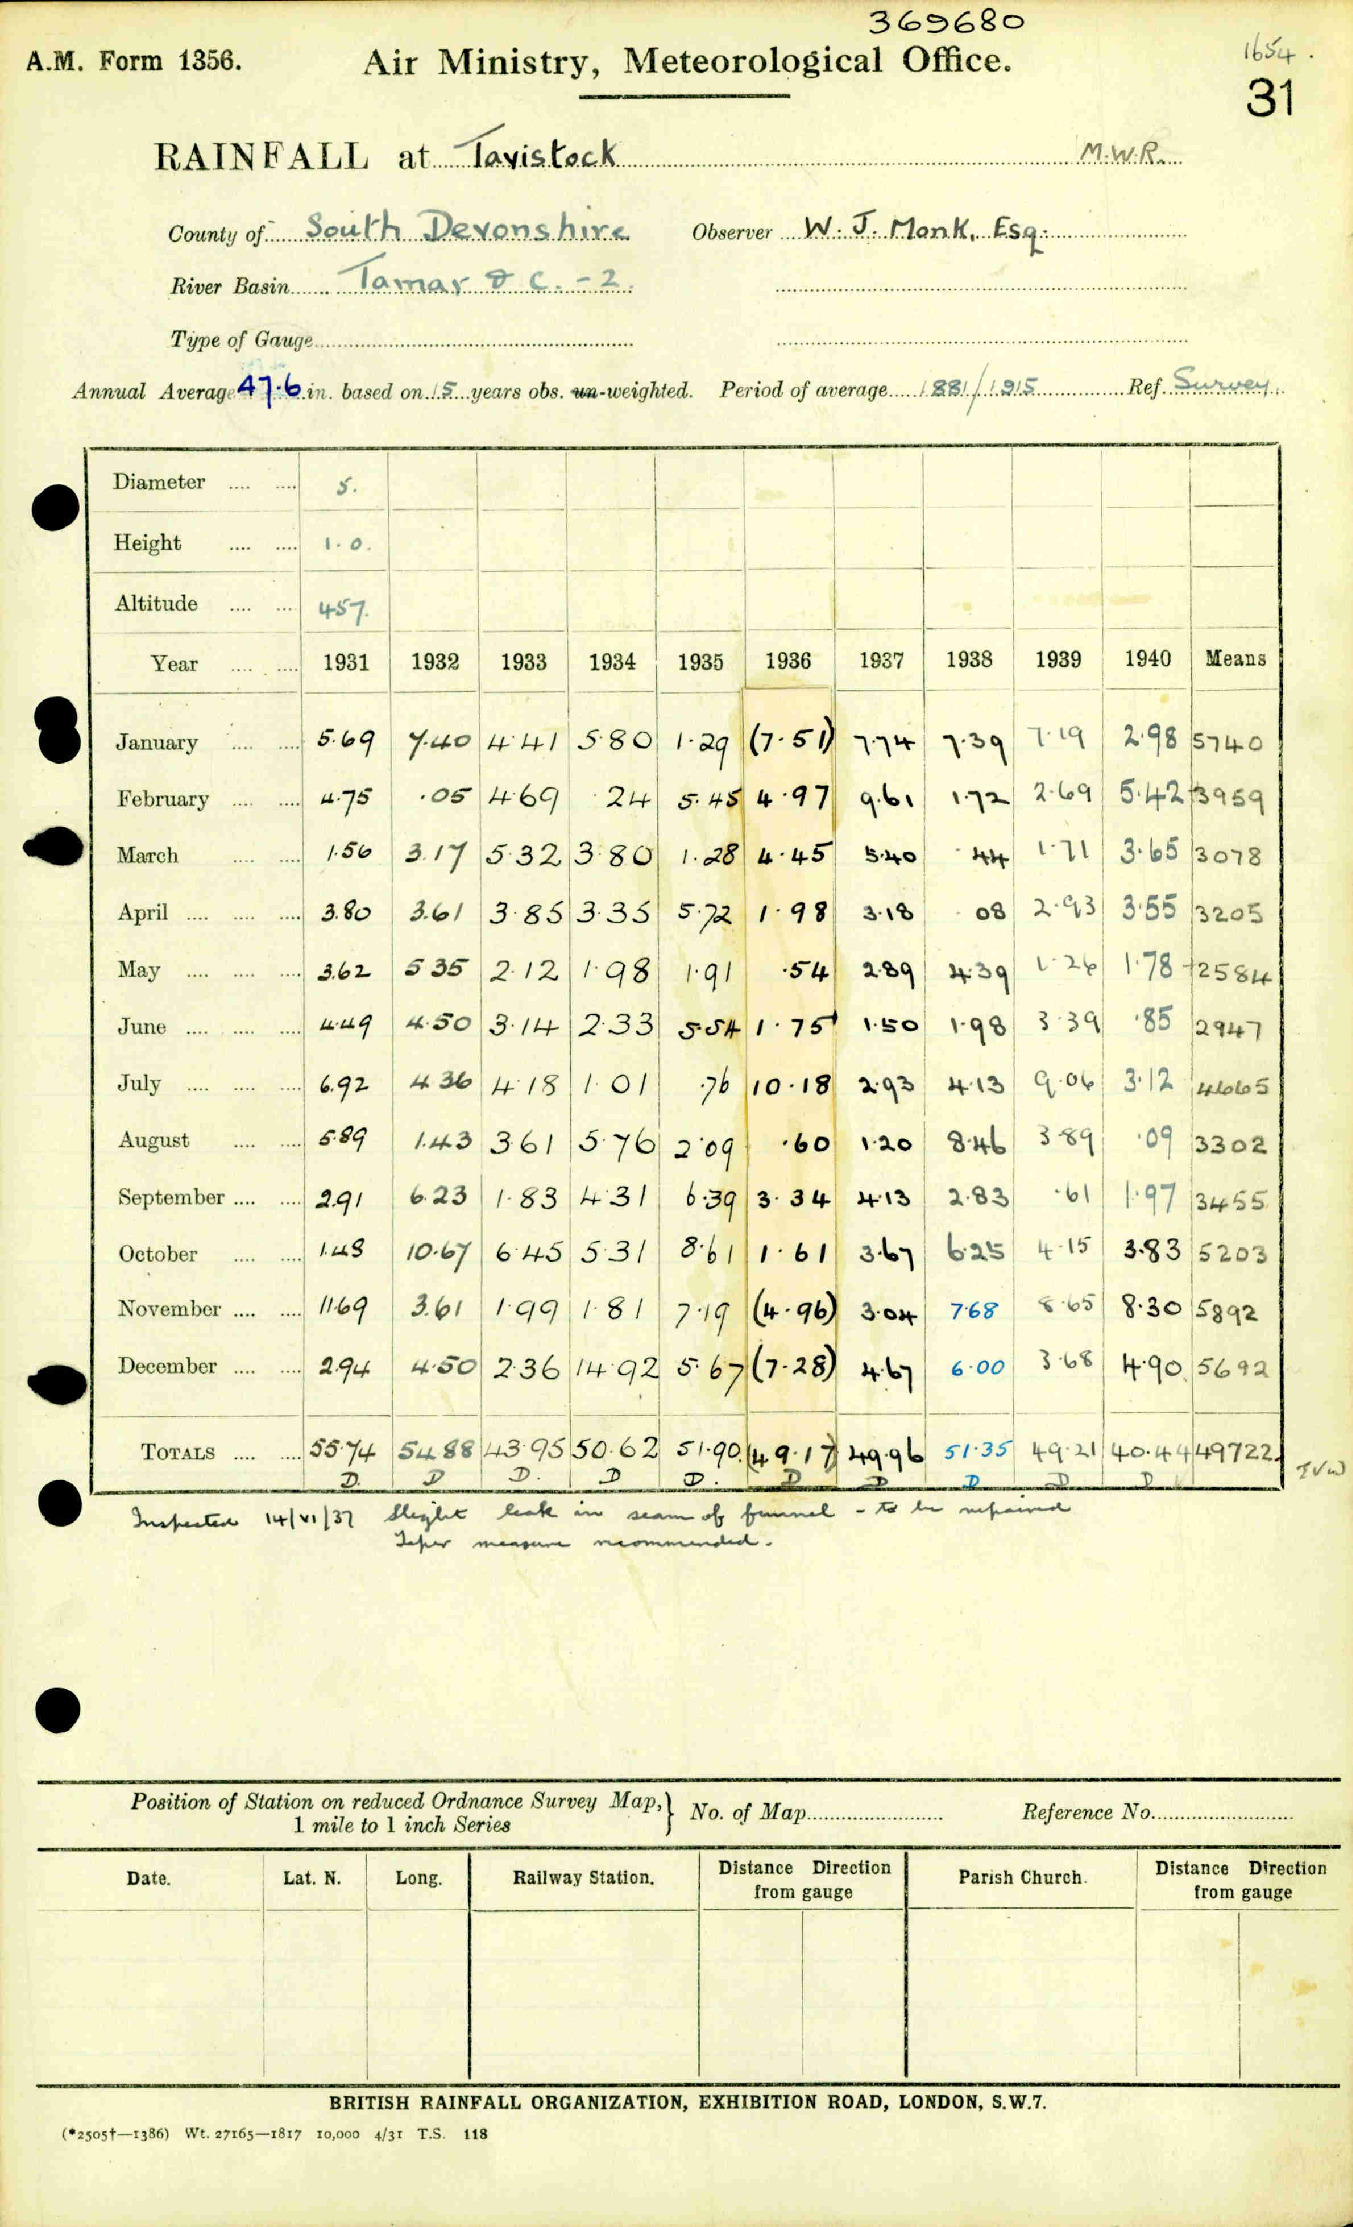 369680
A.M. Form 1356. Air Ministry, Meteorological Office. 1654.
31
RAINFALL at Tavistock M.W.R.
County of South Devonshire Observer W. J. Monk, Esq.
River Basin Tamar & C. - 2.
Type of Gauge
Annual Average 47.6 in. based on 15 years obs. un-weighted. Period of average 1881/1915 Ref. Survey.
Diameter .... .... 5.
Height .... .... 1.0.
Altitude .... .... 457.
Year .... .... 1931 1932 1933 1934 1935 1936 1937 1938 1939 1940 Means
January .... .... 5.69 7.40 4.41 5.80 1.29 (7.51) 7.74 7.39 7.19 2.98 5740
February .... .... 4.75 .05 4.69 .24 5.45 4.97 9.61 1.72 2.69 5.42 3959
March .... .... 1.56 3.17 5.32 3.80 1.28 4.45 5.40 .44 1.71 3.65 3078
April .... .... .... 3.80 3.61 3.85 3.35 5.72 1.98 3.18 .08 2.93 3.55 3205
May .... .... .... 3.62 5.35 2.12 1.98 1.91 .54 2.89 4.39 1.26 1.78 2584
June .... .... .... 4.49 4.50 3.14 2.33 5.54 1.75 1.50 1.98 3.39 .85 2947
July .... .... .... 6.92 4.36 4.18 1.01 .76 10.18 2.93 4.13 9.06 3.12 4665
August .... .... 5.89 1.43 3.61 5.76 2.09 .60 1.20 8.46 3.89 .09 3302
September .... .... 2.91 6.23 1.83 4.31 6.39 3.34 4.13 2.83 .61 1.97 3455
October .... .... 1.48 10.67 6.45 5.31 8.61 1.61 3.67 6.25 4.15 3.83 5203
November .... .... 11.69 3.61 1.99 1.81 7.19 (4.96) 3.04 7.68 8.65 8.30 5892
December .... .... 2.94 4.50 2.36 14.92 5.67 (7.28) 4.67 6.00 3.68 4.90 5692
TOTALS .... .... 55.74 54.88 43.95 50.62 51.90 (49.17) 49.96 51.35 49.21 40.44 49722
D. D D. D D. D D D D D
Inspected 14/VI/37 Slight leak in seam of funnel - to be repaired
Taper measure recommended.
Position of Station on reduced Ordnance Survey Map, } No. of Map Reference No.
1 mile to 1 inch Series
Date. Lat. N. Long. Railway Station. Distance Direction from gauge Parish Church. Distance Direction from gauge
BRITISH RAINFALL ORGANIZATION, EXHIBITION ROAD, LONDON, S.W.7.
(*2505†—1386) Wt. 27165—1817 10,000 4/31 T.S. 118